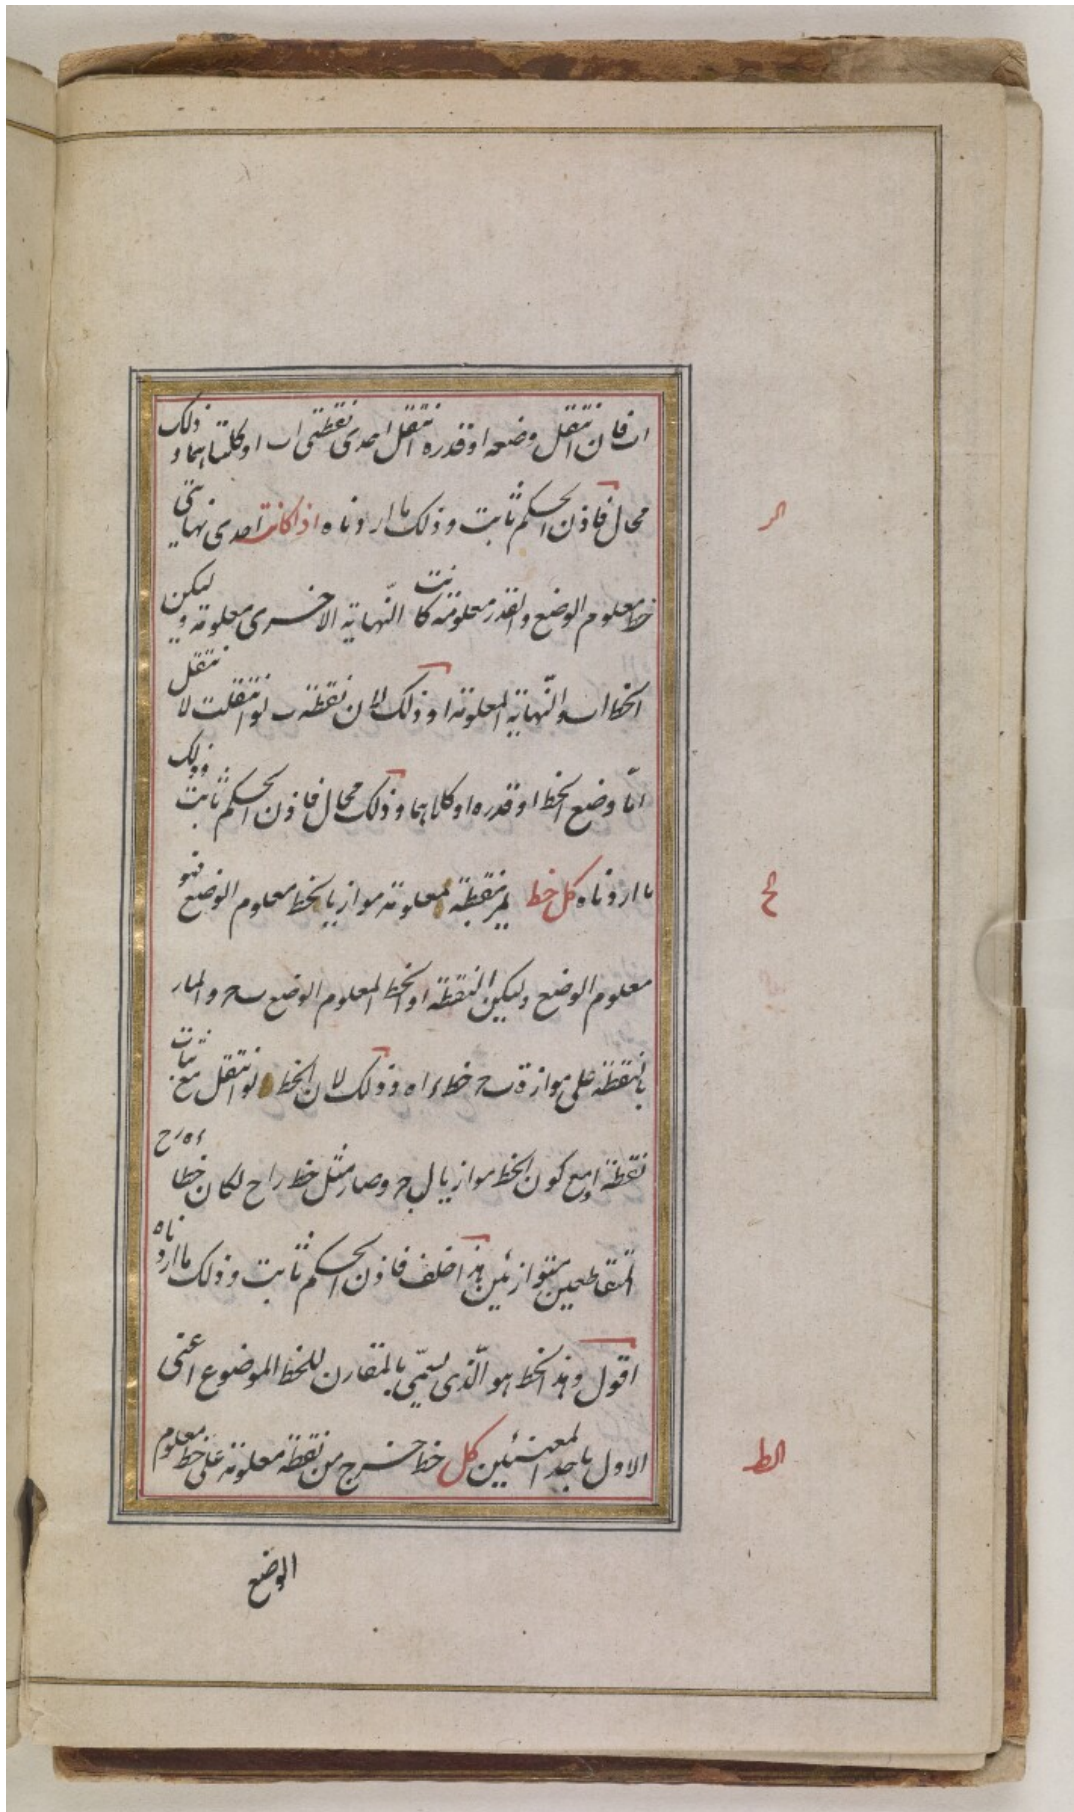 اب فان انتقل وضعه او قدره انتقل احدى نقطتى اب او كلتاهما وذلك
محال فاذن الحكم ثابت وذلك ما اردناه اذا كانت احدى نهايتى
خط معلوم الوضع والقدر معلومة كانت النهاية الاخرى معلومة وليكن
الخط اب والنهاية المعلومة ا وذلك لان نقطة ب لو انتقلت لانتقل
امّا وضع الخط او قدره او كلاهما وذلك محال فاذن الحكم ثابت وذلك
ما اردناه كل خط يمر بنقطة معلومة موازيا لخط معلوم الوضع فهو
معلوم الوضع وليكن النقطة ا والخط المعلوم الوضع ب ح والمار
بالنقطة على موازة ب ح خط ء ا ه وذلك لان الخط لو انتقل مع ثبات
نقطة ا ومع كون الخط موازيا ل ب ج وصار مثل خط ر ا ح لكان خطا ء ه ر ح
المتقاطعين متوازيين هذا خلف فاذن الحكم ثابت وذلك ما اردناه
اقول وهذا الخط هو الّذى يسمّى بالمقارن للخط الموضوع اعنى
الاول باحد المعنيين كل خط خرج من نقطة معلومة على خط معلوم
الوضع
كح
كط